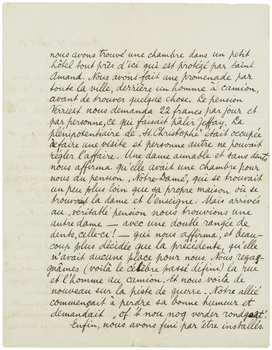 nous avons trouvé une chambre dans un petit
hôtel tout près d'ici qui est protégé par saint
Amand. Nous avons fait une promenade par
toute la ville, derrière un homme à camion,
avant de trouver quelque chose. Le pension
Verrest nous demanda 22 francs par jour et
par personne, ce qui faisait pâlir Jeffay. Le
plénipotentaire de "St. Christophe" était occupé
à faire une visite et personne autre ne pouvait
régler l'affaire. Une dame aimable et sans dents
nous affirma qu'elle avait une chambre pour
nous au pension "Notre-Dame", qui se trouvait
un peu plus loin que sa propre maison, où se
trouvait la dame et l'enseigne. Mais arrivés
au véritable pension nous trouvions une
autre dame — avec une double rangée de
dents, celle-ci! — qui nous affirma, et beau-
coup plus décidée que la précédente, qu'elle
n'avait aucune place pour nous. Nous rega-
gnâmes (voilà le célèbre passé défini) la rue
et l'homme au camion. Et nous voilà de
nouveau sur la piste de guerre. Notre allié
commençait à perdre sa bonne humeur et
demandait "of 't nou nog verder rondgoat".
Enfin, nous avons fini par être installés